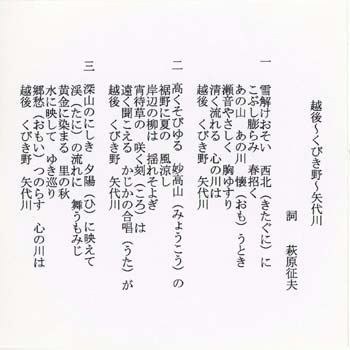 越後～くびき野～矢代川
詞　萩原征夫
一
雪解けおそい　西北（きたぐに）に
こぶし膨らみ　春招く
あの山　あの川　懐（おも）うとき
瀬音やさしく　胸ゆすり
清く流れる　心の川は
越後　くびき野　矢代川
二
高くそびゆる　妙高山（みょうこう）の
裾野に夏の　風涼し
岸辺の柳は　揺れそよぎ
宵待草の　咲く刻（ころ）は
遠く聞こえる　かじかの合唱（うた）が
越後　くびき野　矢代川
三
深山のにしき　夕陽（ひ）に映えて
渓（たに）の流れに　舞うもみじ
黄金に染まる　里の秋
水に映して　ゆき巡り
郷愁（おもい）つのらす　心の川は
越後　くびき野　矢代川